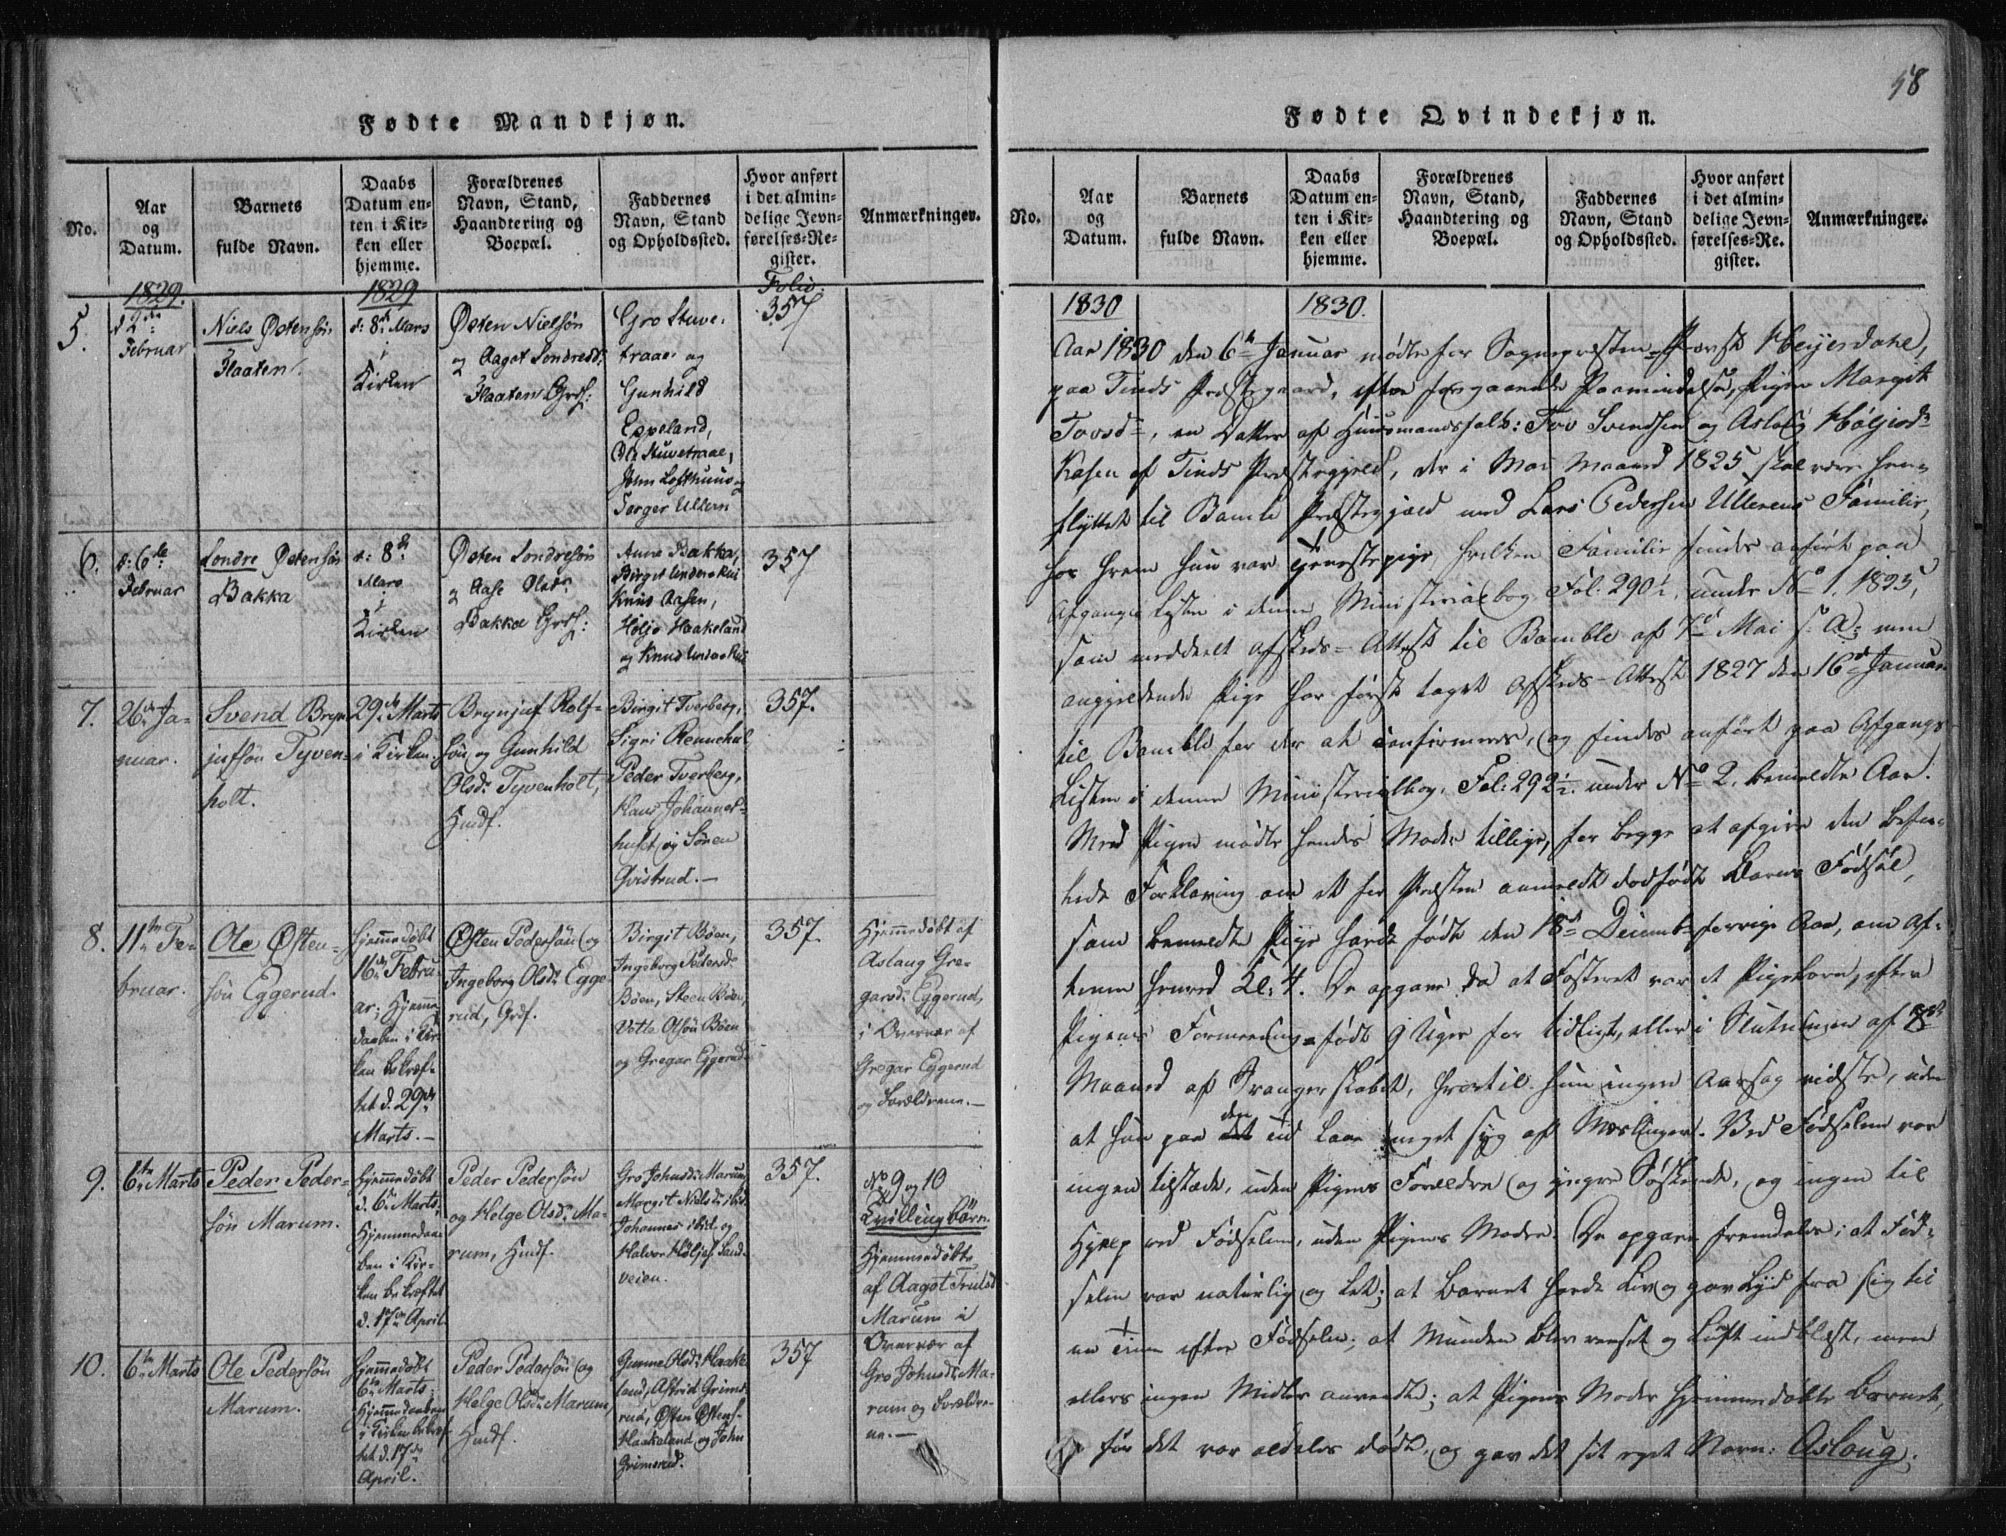 58
Fødte Mandkjøn.
No.
Aar
og
Datum.
Barnets
fulde Navn.
Daabs
Datum en-
ten i Kir-
ken eller
hjemme.
Forældrenes
Navn, Stand,
Haandtering og
Boepæl.
Faddernes
Navn, Stand
og Opholdssted.
Hvor anført
i det almin-
delige Jevn-
førelses-Re-
gister.
Anmærkninger.
1829.
1829
Folio.
5.
d 2de
Februar
Niels Østensøn
Haaten.
d: 8de Mars
i
Kirken
Østen Nielsøn
og Aagot Sondresdr:
Haaten Grdf:
Gro Stuve-
traae og
Gunhild
Espeland,
Ole Stuvetraae,
John Lofthuus og
Torger Ullern
357
6.
d: 6te
Februar
Sondre Østensøn
Bakka
d: 8de
Mars
i
Kirken
Østen Sondresøn
og Aase Olsdr
Bakka Grdf:
Anne Bakka,
Birgit
Knud Aasen,
Holje Haakeland
og Knud
357
7.
26de Ja-
nuar.
Svend Bryn-
julfsøn Tyven-
holt.
29de Marts
i Kirken.
Brynjuf Rolf-
søn og Gunhild
Olsdr Tyvenholt,
Hmdf.
Birgit Tverberg,
Sigri
Peder Tverberg,
Hans Johannes-
huset og Søren
Qvistrud.—
357.
8.
11te Fe-
bruar.
Ole Østen-
søn Eggerud.
Hjemmedøbt
16de Febru-
ar; Hjemme-
daaben i Kir-
ken bekræf-
tet d. 29de
Marts.—
Østen Pedersøn og
Ingeborg Olsdr Egge-
rud, Grdf.
Birgit Bøen,
Ingeborg Pedersdr
Bøen, Steen Bøen,
Vetle Olsøn Bøen
og Gregar Eggerud
357.
Hjemmedøbt af
Aslaug Gre-
garsdr Eggerud,
i Overvær af
Gregar Eggerud
og Forældrene.—
9.
6te Marts
Peder Peder-
søn Marum.
Hjemmedøbt
d. 6te Marts;
Hjemmedaa-
ben i Kir-
ken bekræftet
d. 17de April
Peder Pedersøn
og Helge Olsdr Ma-
rum, Hmdf.
Gro Johnsdr Marum,
Margit Nielsdr ibid.
Johannes ibid. og
Halvor Høljes. Sand-
veien.
357.
No 9 og 10
Tvillingbørn.
Hjemmedøbte
af Aagot Trulsdr
Marum i
Overvær af
Gro Johnsdr Ma-
rum og Forældre-
ne.—
10.
6te Marts
Ole Pedersøn
Marum.
Hjemmedøbt
6te Marts;
Hjemmedaaben
i Kirken bekræf-
tet d. 17de
April.
Peder Pedersøn og
Helge Olsdr Marum,
Hmdf.
Gunne Olsdr Haake-
land, Astrid Grims-
rud, Østen Østens.
Haakeland og John
Grimsrud.
357
Fødte Qvindekjøn.
No.
Aar
og
Datum.
Barnets
fulde Navn.
Daabs
Datum en-
ten i Kir-
ken eller
hjemme.
Forældrenes
Navn, Stand,
Haandtering og
Boepæl.
Faddernes
Navn, Stand
og Opholdssted.
Hvor anført
i det almin-
delige Jevn-
førelses-Re-
gister.
Anmærkninger.
1830
1830.
Aar 1830 den 6te Januar mødte for Sognepræsten Provst Heyerdahl,
paa Tinds Præstegaard, efter foregaaende Paamindelse, Pigen Margit
Tovsdr, en Datter af Huusmandsfolk: Tov Svendsen og Aslaug Høljesdr
Kaasen af Tinds Præstegjeld, der i Mai Maaned 1825 skal være hen-
flyttet til Bamle Præstegjæld med Lars Pedersen Ullerens Familie,
hos hvem hun var Tjenestepige, hvilken Familie findes anført paa
Afgangs Listen i denne Ministerialbog Fol: 290½, under No 1. 1825,
som meddeelt Afskeds-Attest til Bamble af 7de Mai s. A: men
angjeldende Pige har først taget Afskeds-Attest 1827 den 16de Januar
til Bamble for der at confirmeres, og findes anført paa Afgangs
Listen i denne Ministerialbog. Fol: 292½. under No 2. bemeldte Aar.
Med Pigen mødte hendes Moder tillige, for begge at afgive den befa-
lede Forklaring om et for Præsten anmeldt dødfødt Barns Fødsel,
som bemeldte Pige havde født den 18de Decemb. forrige Aar, om Af-
tenen henved Kl: 4. De opgave da at Fosteret var et Pigebarn, efter
Pigens Formeening født 9 Uger for tidligt, eller i Slutningen af 8de
Maaned af Svangerskabet, hvortil hun ingen Aarsag vidste, uden
at hun paa den tid laae meget syg af Meslinger. Ved Fødselen var
ingen tilstæde, uden Pigens Forældre og yngre Søskende, og ingen til
Hjælp ved Fødselen, uden Pigens Moder. De opgave fremdeles: at Fød-
selen var naturlig og let; at Barnet havde Liv og gav Lyd fra sig til
en Time efter Fødselen; at Munden blev renset og Luft indblæst, men
ellers ingen Midler anvendte; at Pigens Moder hjemmedøbte Barnet,
før det var aldeles dødt, og gav det sit eget Navn: Aslaug.